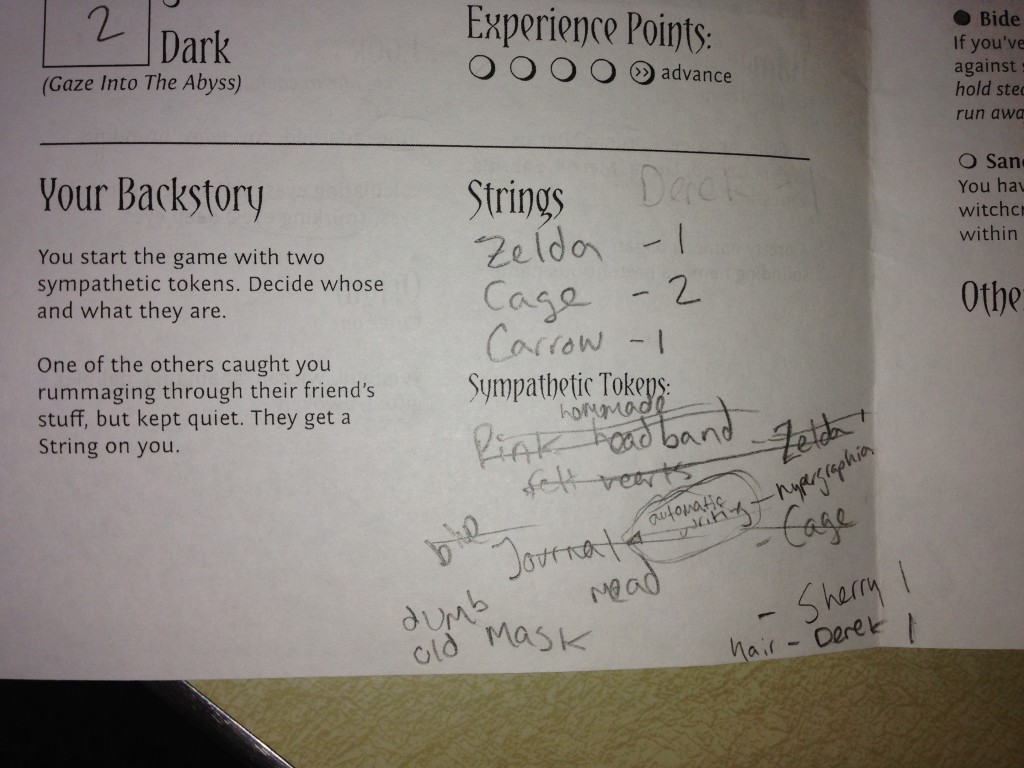 2
Dark
(Gaze Into The Abyss)
Experience Points:
advance
Your Backstory
You start the game with two
sympathetic tokens. Decide whose
and what they are.
One of the others caught you
rummaging through their friend's
stuff, but kept quiet. They get a
String on you.
Strings
Derek - 1
Zelda - 1
Cage - 2
Carrow - 1
Sympathetic Tokens:
hommade
Pink headband - Zelda
felt
automatic writing - hypergraphia
Journal - Cage
dumb
old Mask
- Sherry 1
hair - Derek 1
Bide
If you've
against
hold stea
run awa
Sand
You hav
witchcr
within
Othe